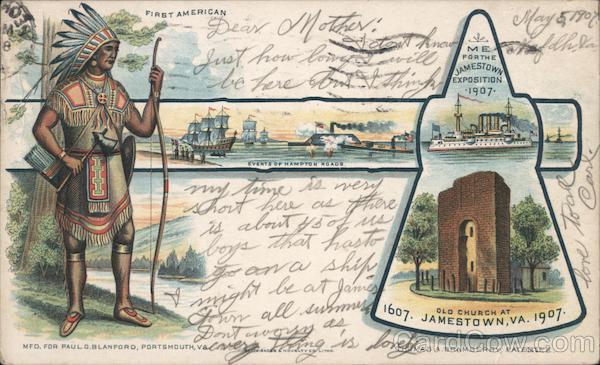 FIRST AMERICAN
Dear Mother:
May 5, 1907
I dont know
Just how long I will
be here but I think
ME
FOR THE
JAMESTOWN
EXPOSITION
·1907·
EVENTS OF HAMPTON ROADS.
my time is very
short here as there
is about 45 of us
boys that has to
go on a ship
I might be at James
Town all summer
Dont worry as
every thing is
love to all
Carl
OLD CHURCH AT
1607. JAMESTOWN, VA. 1907.
MFD. FOR PAUL D. BLANFORD, PORTSMOUTH, VA.
CardCow.com